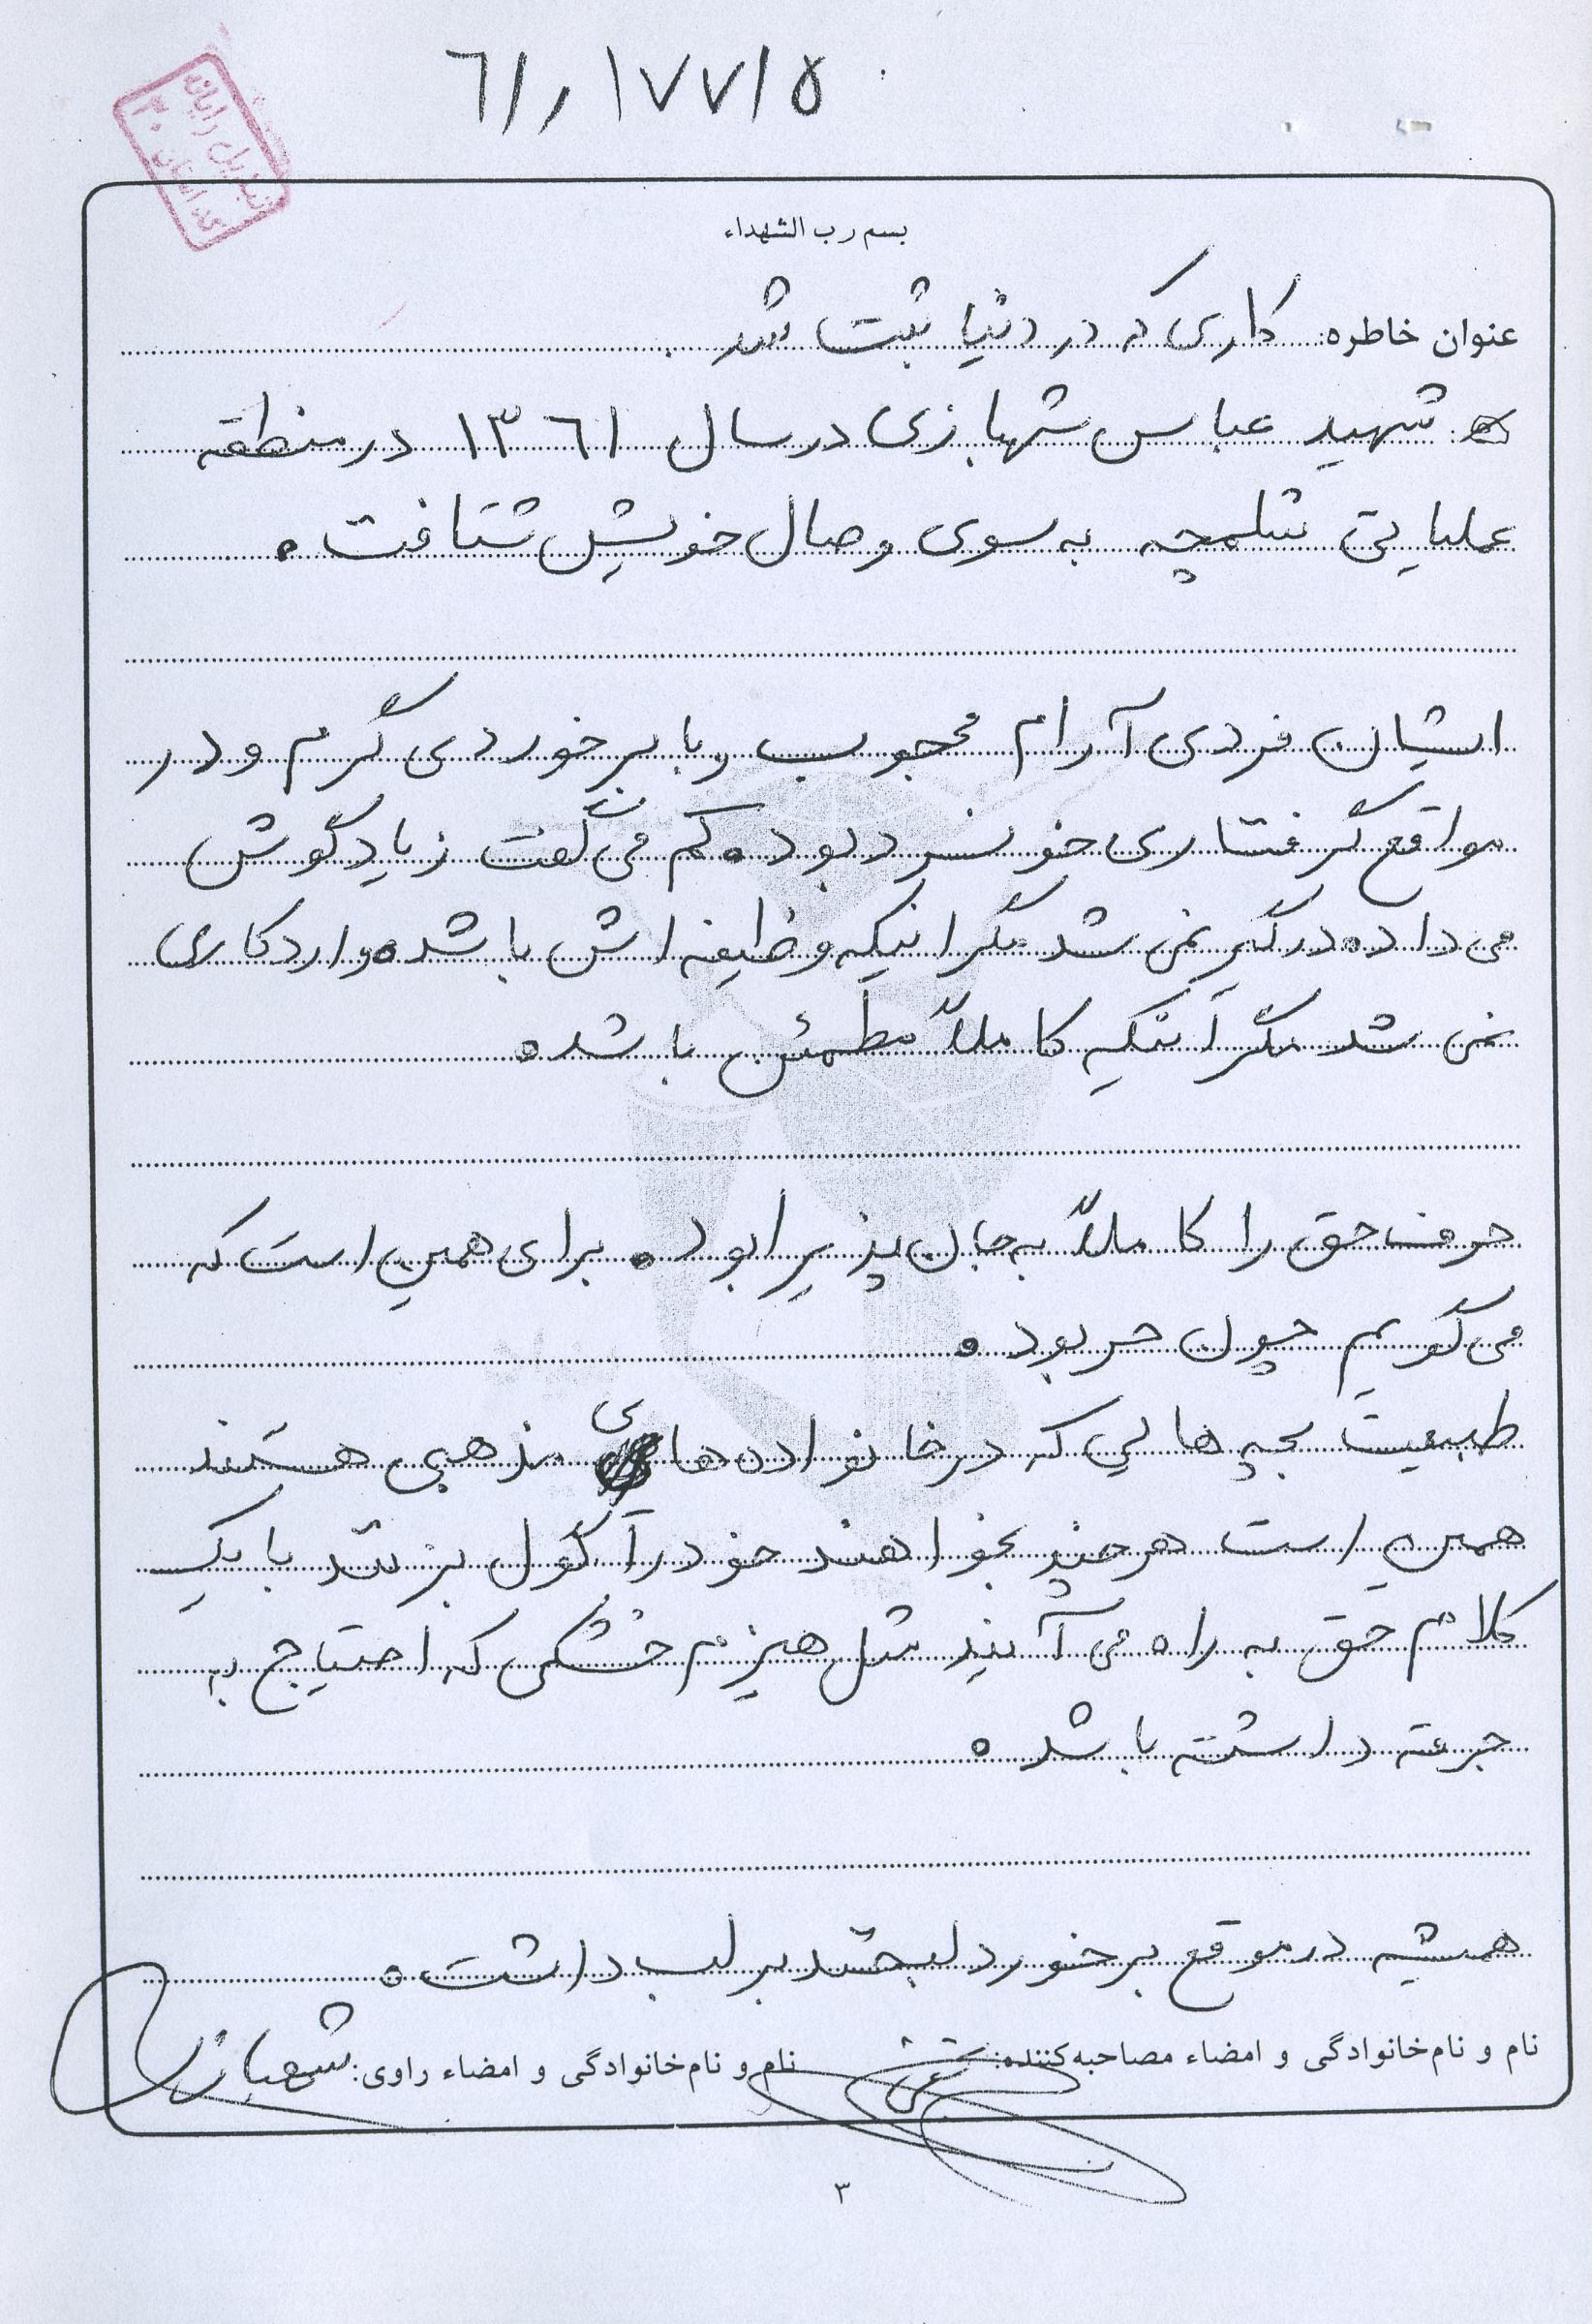 ٦١٫١٧٧١٥
تبدیل رایانه
کد استان ۳۰
بسم رب الشهداء
عنوان خاطره: کاری که در دنیا ثبت شد.
شهید عباس شهبازی در سال ١٣٦١ در منطقه
عملیاتی شلمچه به سوی وصال خویش شتافت.
ایشان فردی آرام محبوب و با برخوردی گرم و در
مواقع گرفتاری خونسرد بود. کم می گفت زیاد گوش
می داد. درگیر نمی شد مگر اینکه وظیفه اش باشد. وارد کاری
نمی شد مگر آنکه کاملاً مطمئن باشد.
حرف حق را کاملاً به جان پذیرا بود. برای همین است که
می گویم چون حر بود.
طبیعت بچه هایی که در خانواده های مذهبی هستند
همین است هر چند بخواهند خود را گول بزنند با یک
کلام حق به راه می آیند مثل هیزم خشکی که احتیاج به
جرعته داشته باشد.
همیشه در موقع برخورد لبخند بر لب داشت.
نام و نام خانوادگی و امضاء مصاحبه کننده: نام و نام خانوادگی و امضاء راوی: شهبازی
۳